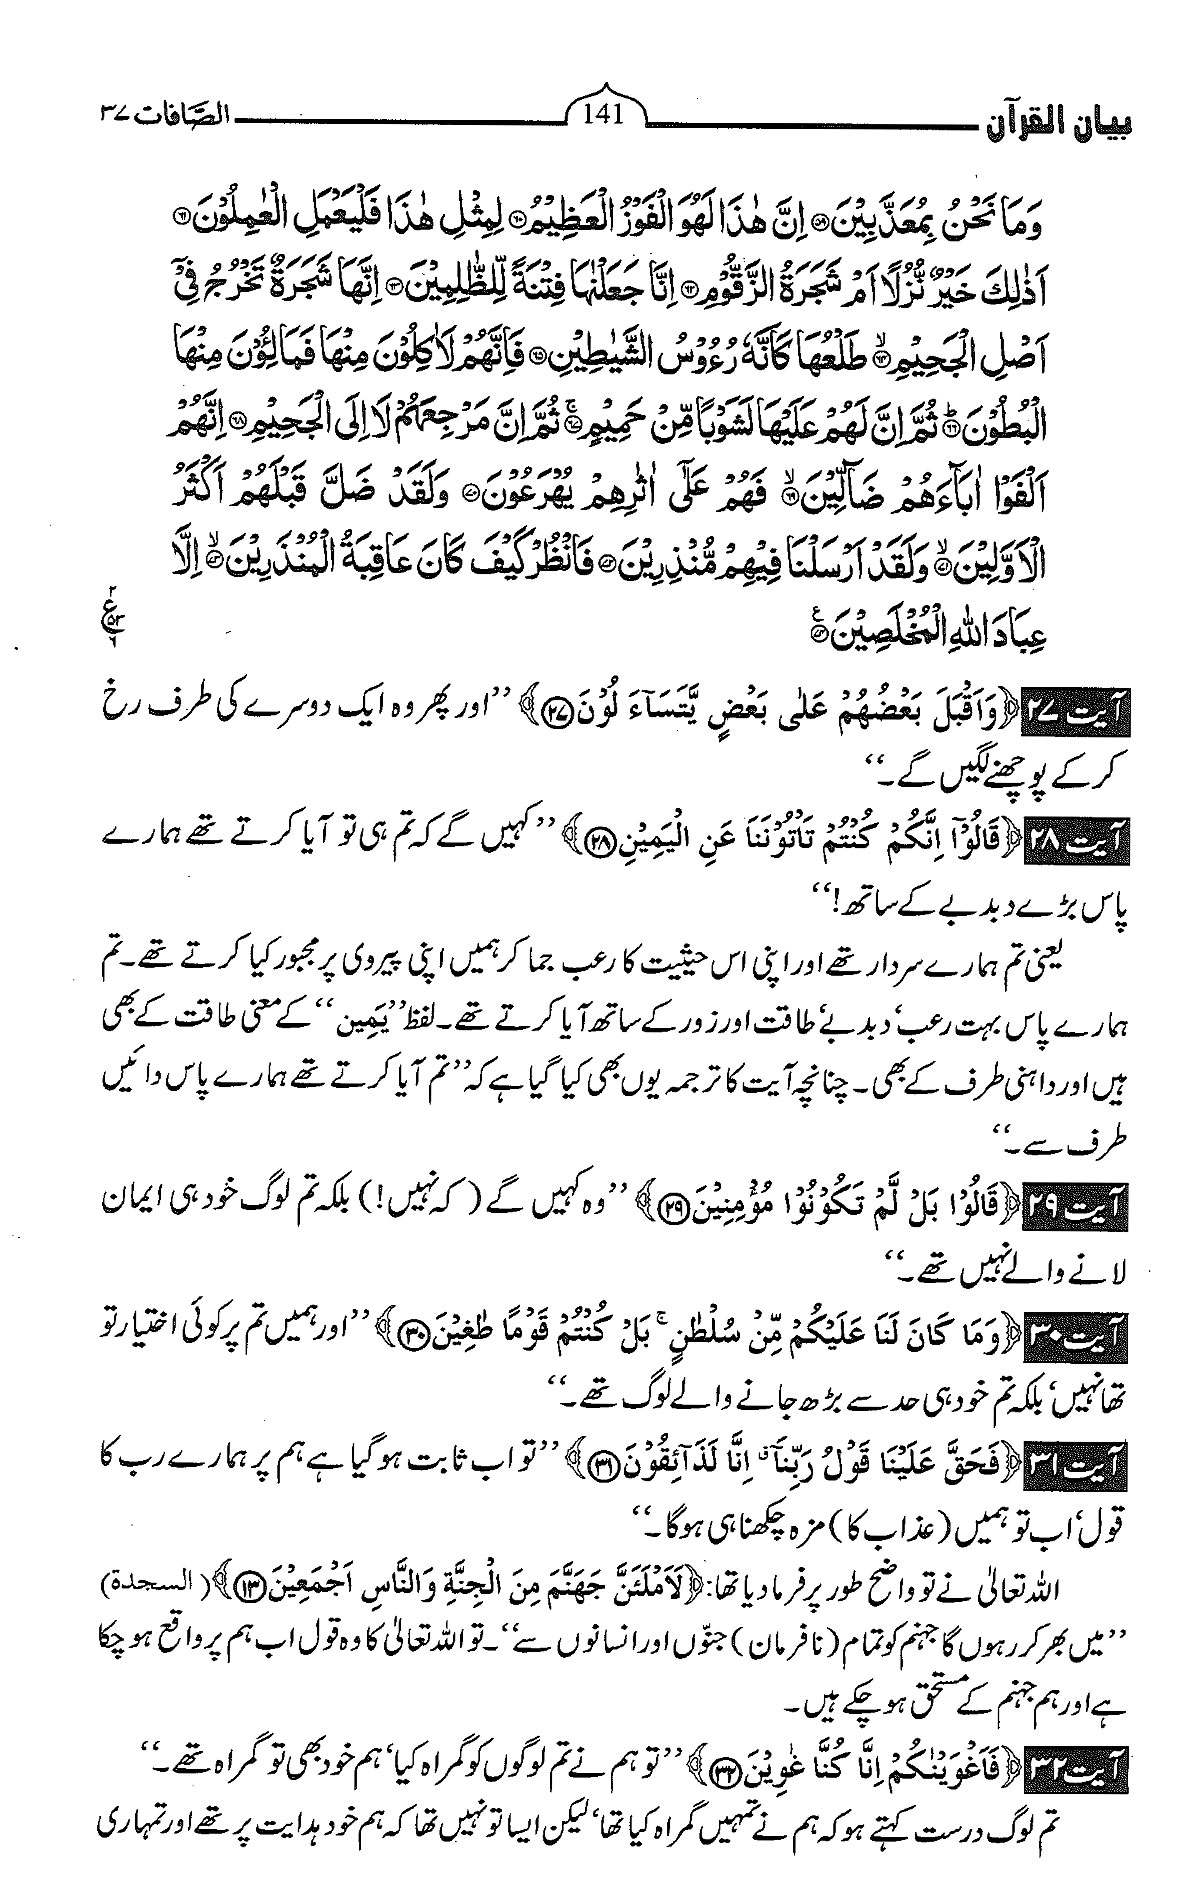 بیان القرآن 141 الصّافات ۳۷
وَمَا نَحْنُ بِمُعَذَّبِیْنَ ۝۵۹ اِنَّ هٰذَا لَهُوَ الْفَوْزُ الْعَظِیْمُ ۝۶۰ لِمِثْلِ هٰذَا فَلْیَعْمَلِ الْعٰمِلُوْنَ ۝۶۱
اَذٰلِكَ خَیْرٌ نُّزُلًا اَمْ شَجَرَةُ الزَّقُّوْمِ ۝۶۲ اِنَّا جَعَلْنٰهَا فِتْنَةً لِّلظّٰلِمِیْنَ ۝۶۳ اِنَّهَا شَجَرَةٌ تَخْرُجُ فِیْۤ
اَصْلِ الْجَحِیْمِ ۝۶۴ طَلْعُهَا كَاَنَّهٗ رُءُوْسُ الشَّیٰطِیْنِ ۝۶۵ فَاِنَّهُمْ لَاٰكِلُوْنَ مِنْهَا فَمَالِـُٔوْنَ مِنْهَا
الْبُطُوْنَ ۝۶۶ ثُمَّ اِنَّ لَهُمْ عَلَیْهَا لَشَوْبًا مِّنْ حَمِیْمٍ ۝۶۷ ثُمَّ اِنَّ مَرْجِعَهُمْ لَا۟اِلَی الْجَحِیْمِ ۝۶۸ اِنَّهُمْ
اَلْفَوْا اٰبَآءَهُمْ ضَآلِّیْنَ ۝۶۹ فَهُمْ عَلٰۤی اٰثٰرِهِمْ یُهْرَعُوْنَ ۝۷۰ وَلَقَدْ ضَلَّ قَبْلَهُمْ اَكْثَرُ
الْاَوَّلِیْنَ ۝۷۱ وَلَقَدْ اَرْسَلْنَا فِیْهِمْ مُّنْذِرِیْنَ ۝۷۲ فَانْظُرْ كَیْفَ كَانَ عَاقِبَةُ الْمُنْذَرِیْنَ ۝۷۳ اِلَّا
عِبَادَ اللّٰهِ الْمُخْلَصِیْنَ ۝۷۴
آیت ۲۷ ﴿وَاَقْبَلَ بَعْضُهُمْ عَلٰی بَعْضٍ یَّتَسَآءَ لُوْنَ ۝۲۷﴾ ’’اور پھر وہ ایک دوسرے کی طرف رخ
کر کے پوچھنے لگیں گے۔‘‘
آیت ۲۸ ﴿قَالُوْۤا اِنَّكُمْ كُنْتُمْ تَاْتُوْنَنَا عَنِ الْیَمِیْنِ ۝۲۸﴾ ’’کہیں گے کہ تم ہی تو آیا کرتے تھے ہمارے
پاس بڑے دبدبے کے ساتھ!‘‘
یعنی تم ہمارے سردار تھے اور اپنی اس حیثیت کا رعب جما کر ہمیں اپنی پیروی پر مجبور کیا کرتے تھے۔ تم
ہمارے پاس بہت رعب‘ دبدبے‘ طاقت اور زور کے ساتھ آیا کرتے تھے۔ لفظ ’’یَمِین‘‘ کے معنی طاقت کے بھی
ہیں اور داہنی طرف کے بھی۔ چنانچہ آیت کا ترجمہ یوں بھی کیا گیا ہے کہ ’’تم آیا کرتے تھے ہمارے پاس دائیں
طرف سے۔‘‘
آیت ۲۹ ﴿قَالُوْا بَلْ لَّمْ تَكُوْنُوْا مُؤْمِنِیْنَ ۝۲۹﴾ ’’وہ کہیں گے (کہ نہیں!) بلکہ تم لوگ خود ہی ایمان
لانے والے نہیں تھے۔‘‘
آیت ۳۰ ﴿وَمَا كَانَ لَنَا عَلَیْكُمْ مِّنْ سُلْطٰنٍ ۚ بَلْ كُنْتُمْ قَوْمًا طٰغِیْنَ ۝۳۰﴾ ’’اور ہمیں تم پر کوئی اختیار تو
تھا نہیں‘ بلکہ تم خود ہی حد سے بڑھ جانے والے لوگ تھے۔‘‘
آیت ۳۱ ﴿فَحَقَّ عَلَیْنَا قَوْلُ رَبِّنَاۤ ۖ اِنَّا لَذَآئِقُوْنَ ۝۳۱﴾ ’’تو اب ثابت ہو گیا ہے ہم پر ہمارے رب کا
قول‘ اب تو ہمیں (عذاب کا) مزہ چکھنا ہی ہو گا۔‘‘
اللہ تعالیٰ نے تو واضح طور پر فرما دیا تھا: ﴿لَاَمْلَئَنَّ جَهَنَّمَ مِنَ الْجِنَّةِ وَالنَّاسِ اَجْمَعِیْنَ ۝۱۳﴾ (السجدۃ)
’’میں بھر کر رہوں گا جہنم کو تمام (نافرمان) جنوں اور انسانوں سے‘‘۔ تو اللہ تعالیٰ کا وہ قول اب ہم پر واقع ہو چکا
ہے اور ہم جہنم کے مستحق ہو چکے ہیں۔
آیت ۳۲ ﴿فَاَغْوَیْنٰكُمْ اِنَّا كُنَّا غٰوِیْنَ ۝۳۲﴾ ’’تو ہم نے تم لوگوں کو گمراہ کیا‘ ہم خود بھی تو گمراہ تھے۔‘‘
تم لوگ درست کہتے ہو کہ ہم نے تمہیں گمراہ کیا تھا‘ لیکن ایسا تو نہیں تھا کہ ہم خود ہدایت پر تھے اور تمہاری